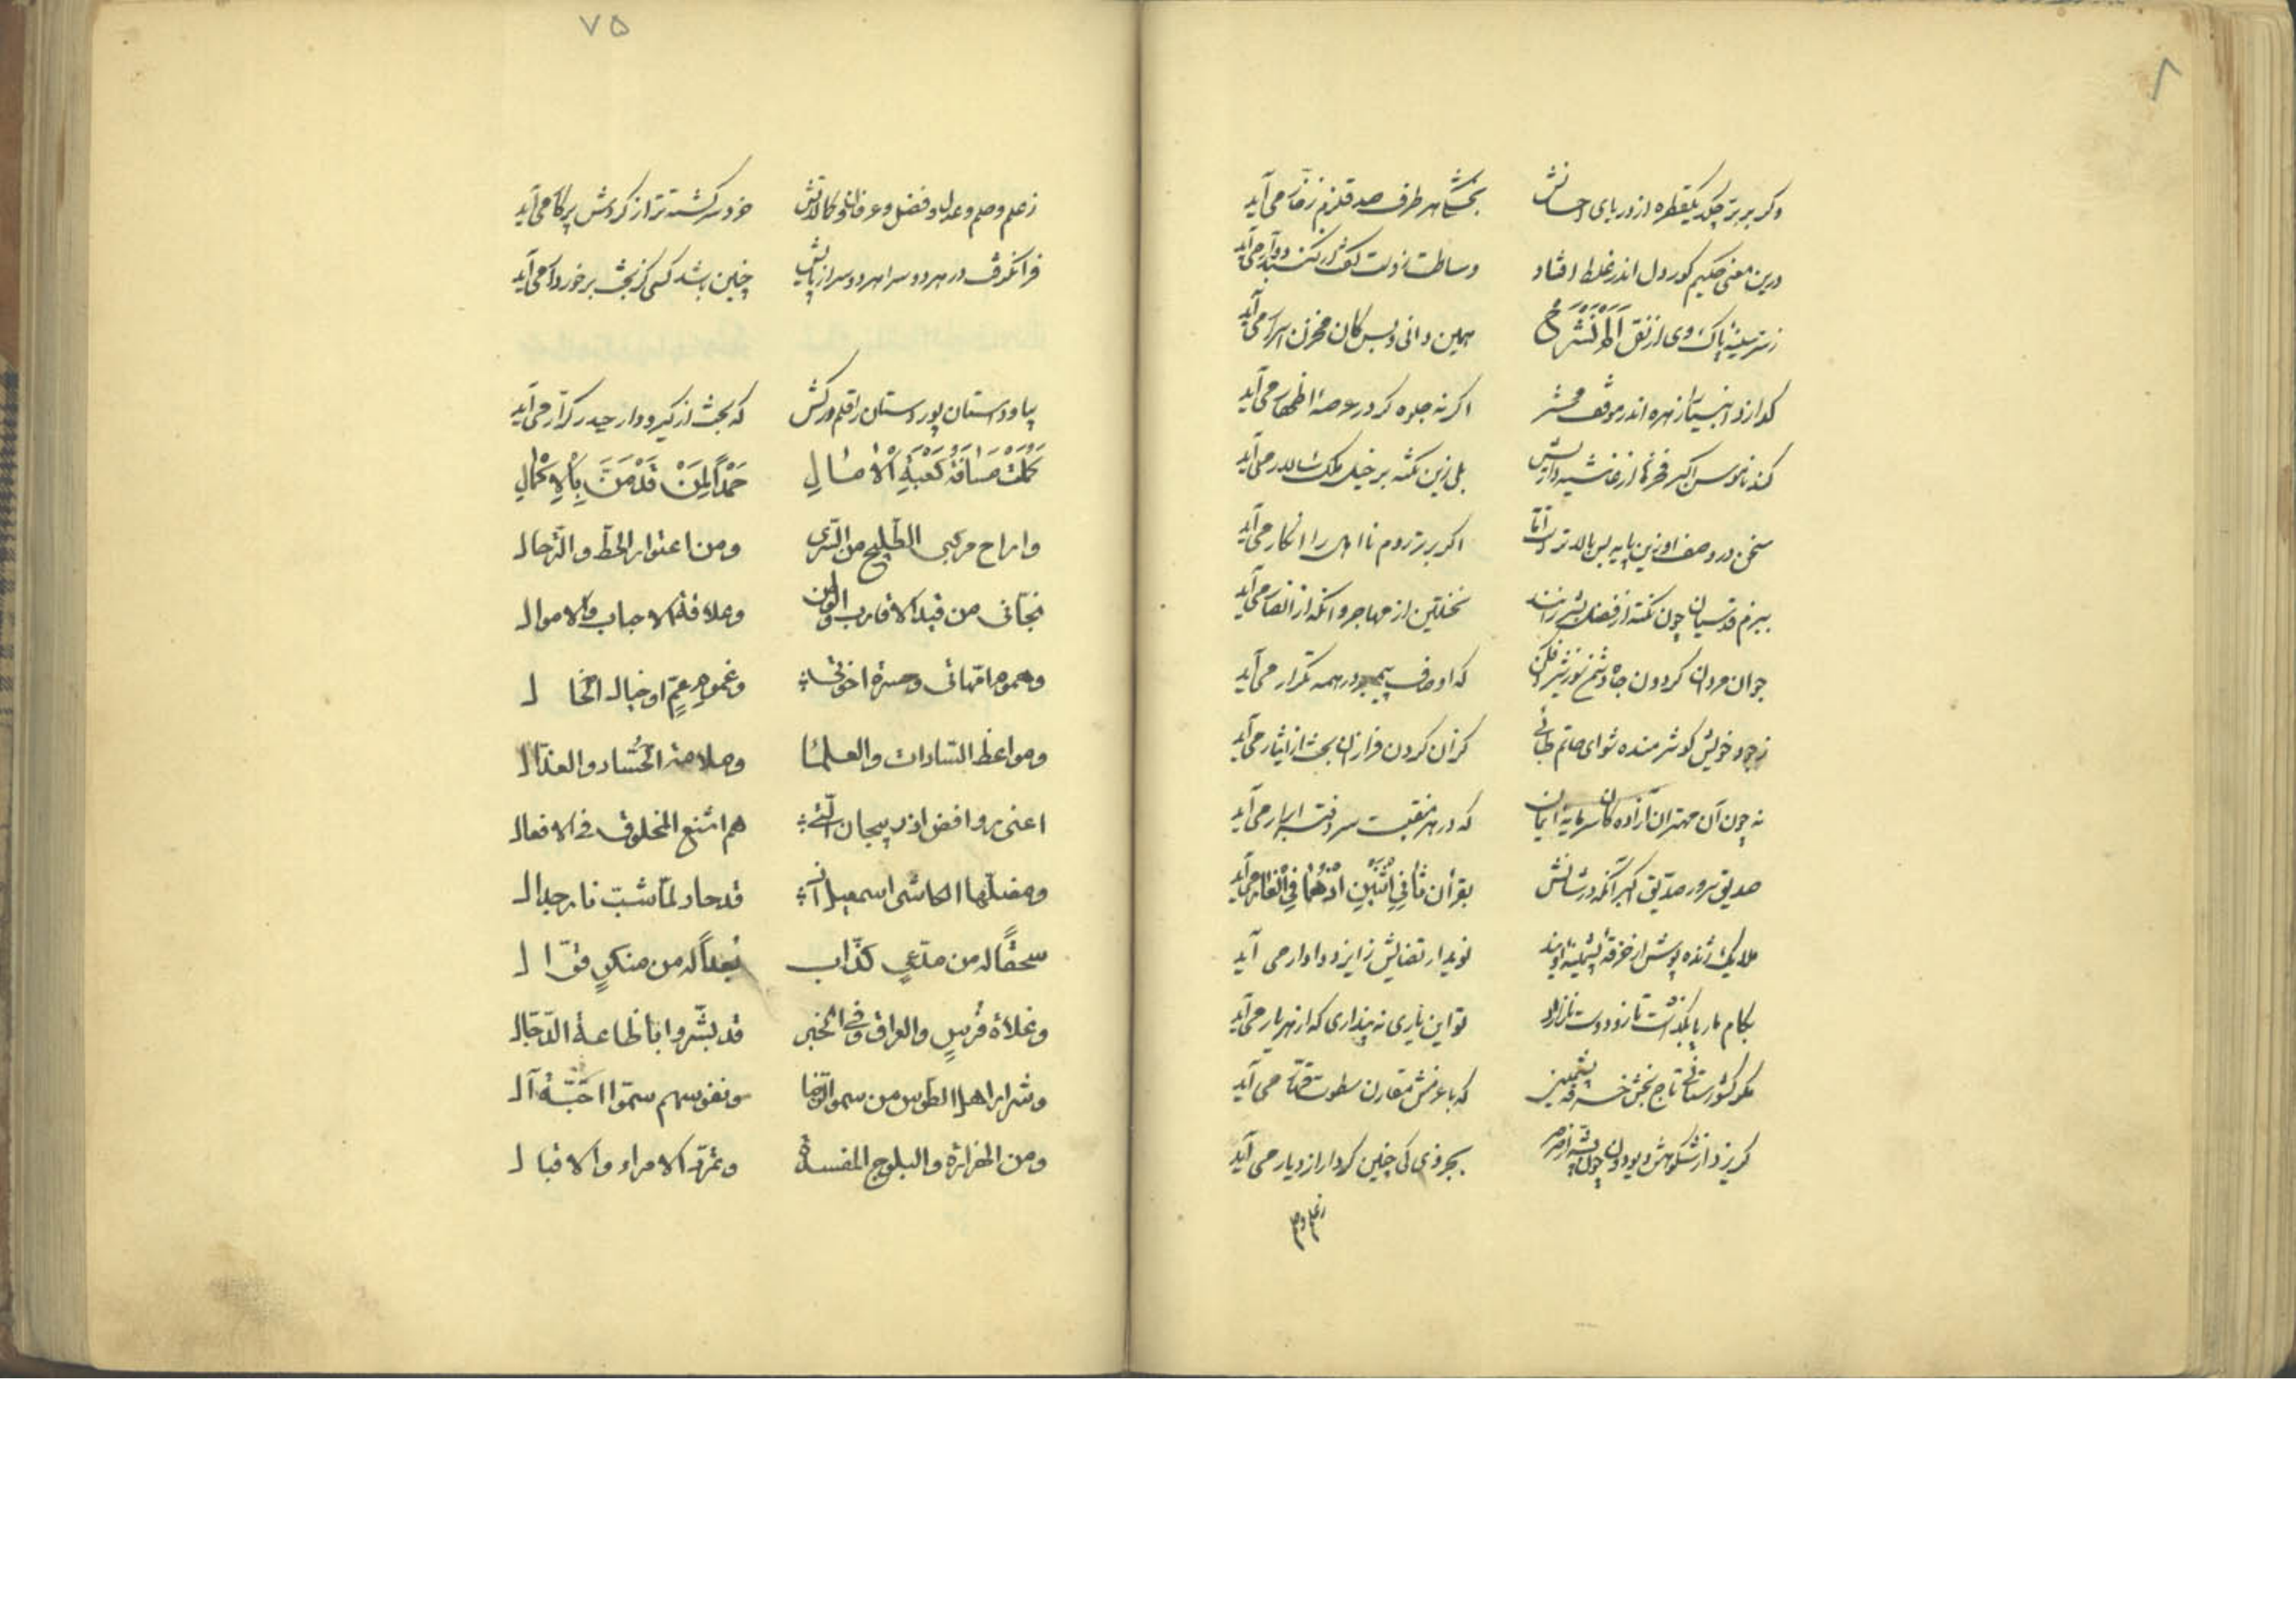 ۸
وکر بر بر چکد یکقطره از دریای احسانش بخشکا هر طرف صد قلزم زخار می آید
درین معنی حکیم کوردل اندر غلط افتاد وساطت
ز سر سینهٔ پاک وی از نقل اَلَمْ نَشْرَحْ همین دانی و بس کان مخزن اسرار می آید
کدازد انبیا را زهره اندر موقف محشر اکر نه جلوه کر در عرصهٔ اظهار می آید
کند ناموس اکبر فخرها از غاشیه داریش بلی زین نکته بر خیل ملک سالار می آید
سخن در وصف او زین پایه بس بالاتر است امّا اکر برتر روم نا اهل را انکار می آید
ببزم قدسیان چون نکته از فضل بشر رانند نخستین از مهاجر وانکه از انصار می آید
جوان مردان کردون جاه که اوصاف پیمبر در همه تکرار می آید
ز جود خویش کو شرمنده شو ای حاتم طائی کزان کردن فرازان بحث از ایثار می آید
نه چون آن مهتران آزاده کان سرمایهٔ ایمان که در هر منقبت سر دفتر ابرار می آید
صدیق سرور صدّیق اکبر آنکه در شانش بقرآن ثانِیَ اثْنَیْنِ اذْهُمَا فِی الْغَار می آید
ملایک ژنده پوش از خرقهٔ پشمینهٔ اویند نوید ارتضایش ز ایزد دادار می آید
بکام مار پا بکذاشت تا زو دوست نازارد تو این یاری نه پنداری که از هر یار می آید
مکو کشورستانی تاج بخش خسرو پشمین که با عزمش مقارن سطوت قهّار می آید
کریزد از شکوهش دیو دون چون پشه از صرصر بجز وی کی چنین کردار از دیار می آید
ز علم
۷۵
ز علم و حلم و عدل و فضل و عرفان و کمالاتش خرد سرکشته تر از کردش پرکار می آید
فرا نکرفت در هر دو سرا هر دو سر از پایش چنین باشد کسی کز بخت برخوردار می آید
بیا و داستان پور دستان را قلم درکش که بحث از کیر و دار حیدر کرّار می آید
کَمُلَتْ مَسَافَةُ کَعْبَةِ الْآمَالِ حَمْداً لِمَنْ قَدْ مَنَّ بِالْإِکْمَالِ
و اراح مرکبی الطلیح من السّری ومن اعتوار الحطّ والترحال
نجّانی من قید الاقارب والوطن وعلاقة الاحباب والاموال
وهموم امّهاتی وحسرة اخوتی وغموم عمٍّ او خیال الخال
ومواعظ السّادات والعلمآ وملامة الحُسّاد والعذّال
اعنی روافض اذربیجان الّتی هم اشنع المخلوق فی الافعال
ومضلّها الکاشی اسمعیل قد حاد لمّا شبّ نار جدال
سحقاً له من مدّعی کذّاب بُعداً له من منکرٍ قوّال
وغلاة فُرسٍ والعراق وفی الخبر قد بشّروا باطاعة الدّجّال
وشرار اهل الطّوس من سموا الرّضا ونفوسهم سمّوا احبّة آل
ومن الهزارة والبلوج المفسدة وتمرّد الامراء والاقبال